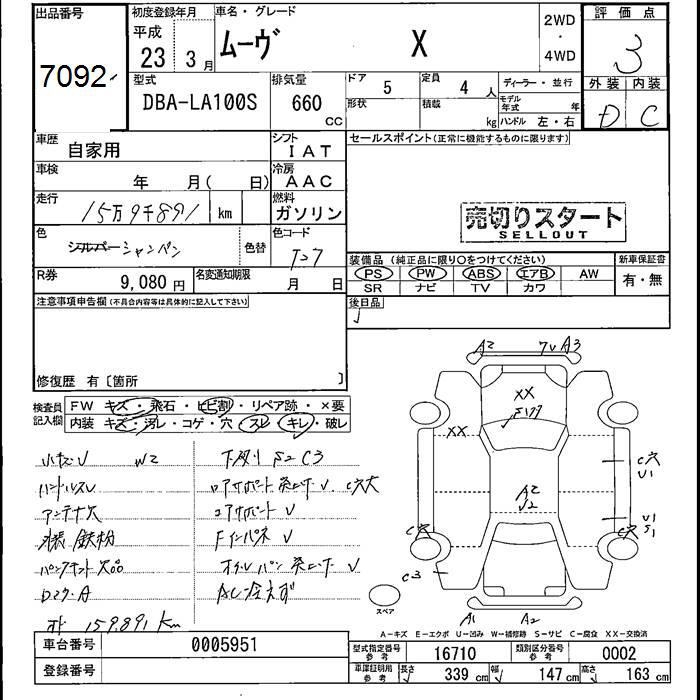 出品番号
7092
初度登録年月
平成
23 3 月
車名・グレード
ムーヴ X
2WD
・
4WD
評価点
3
外装 内装
D C
型式
DBA-LA100S
排気量
660
CC
ドア 5
形状
定員 4 人
積載 kg
ディーラー・並行
モデル年式 年
ハンドル 左・右
車歴
自家用
シフト
I A T
セールスポイント(正常に機能するものに限ります)
車検
年 月( 日)
冷房
A A C
走行
15万9千891 km
燃料
ガソリン
売切りスタート
SELLOUT
色
シルバー シャンパン
色替
色コード
T27
R券
9,080 円
名変通知期限
月 日
装備品(純正品に限り○をつけてください)
PS PW ABS エアB AW
SR ナビ TV カワ
新車保証書
有・無
注意事項申告欄(不具合内容等は具体的に記入して下さい)
後日品
修復歴 有〔箇所 〕
検査員記入欄
FW キズ・飛石・ヒビ割・リペア跡・×要
内装 キズ・汚レ・コゲ・穴・スレ・キレ・破レ
小キズU W2
ハンドルスレ
アンテナ欠
外装 鉄粉
パンクキット欠品
下廻り S2 C3
コアサポート U
Fインパネ U
159,891 km
A2 A3
XX
XX
A2
U2
C穴
U1
U1
S1
C穴
C穴
C3
A1 A2
スペア
A−キズ E−エクボ U−凹み W−補修跡 S−サビ C−腐食 XX−交換済
車台番号 0005951
登録番号
型式指定番号
参考
16710
類別区分番号
参考
0002
車庫証明用
参考
長さ 339 cm 幅 147 cm 高さ 163 cm